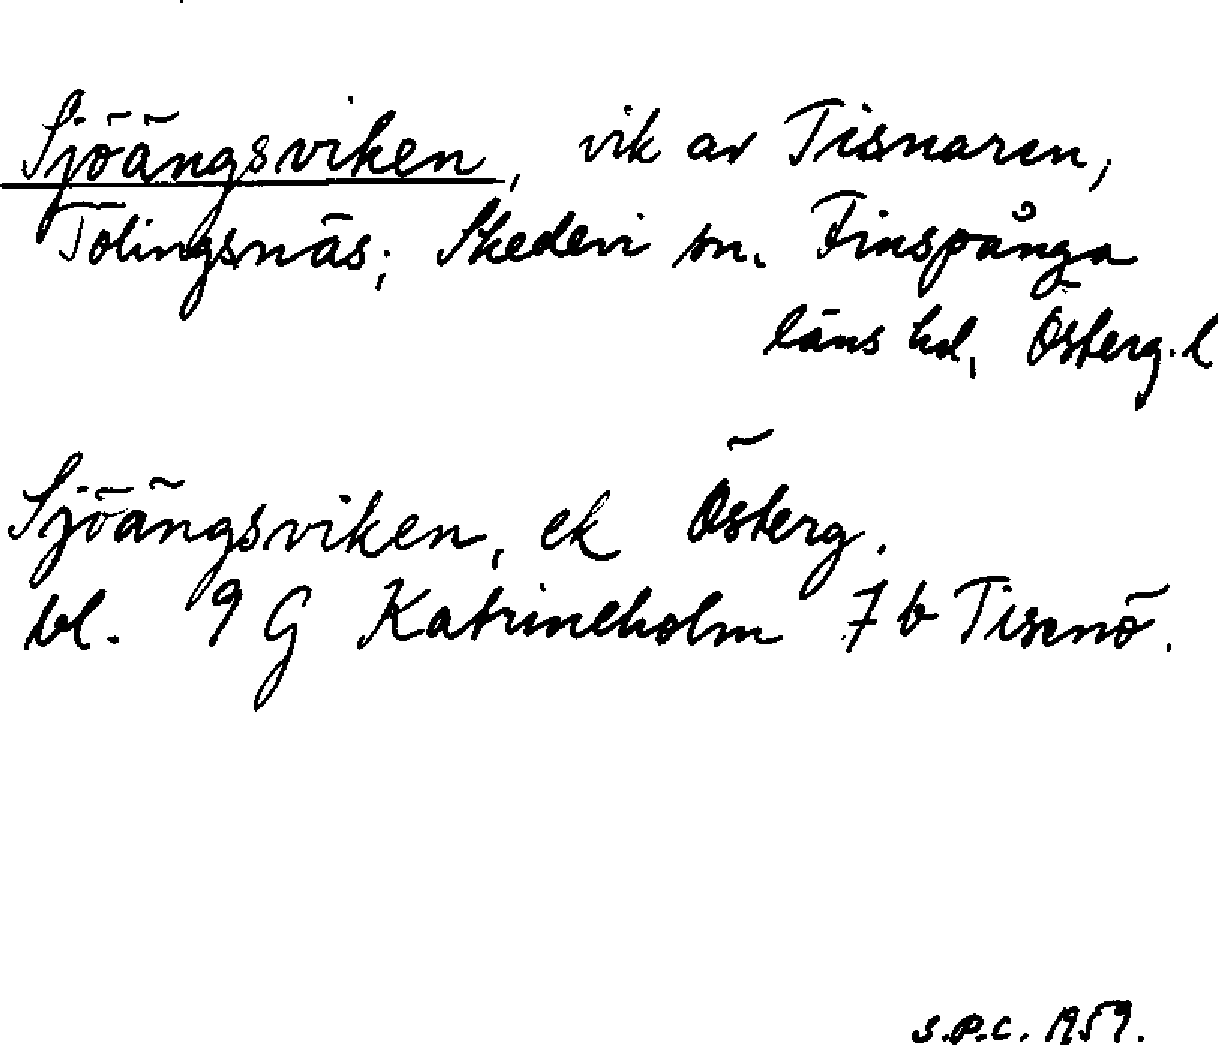 Sjöängsviken, vik av Tisnaren,
Tolingsnäs; Skedevi sn. Finspånga
läns hd, Österg. l
Sjöängsviken, ek Österg.
bl. 9 G Katrineholm 7 b Tisenö.
S.P.C. 1959.